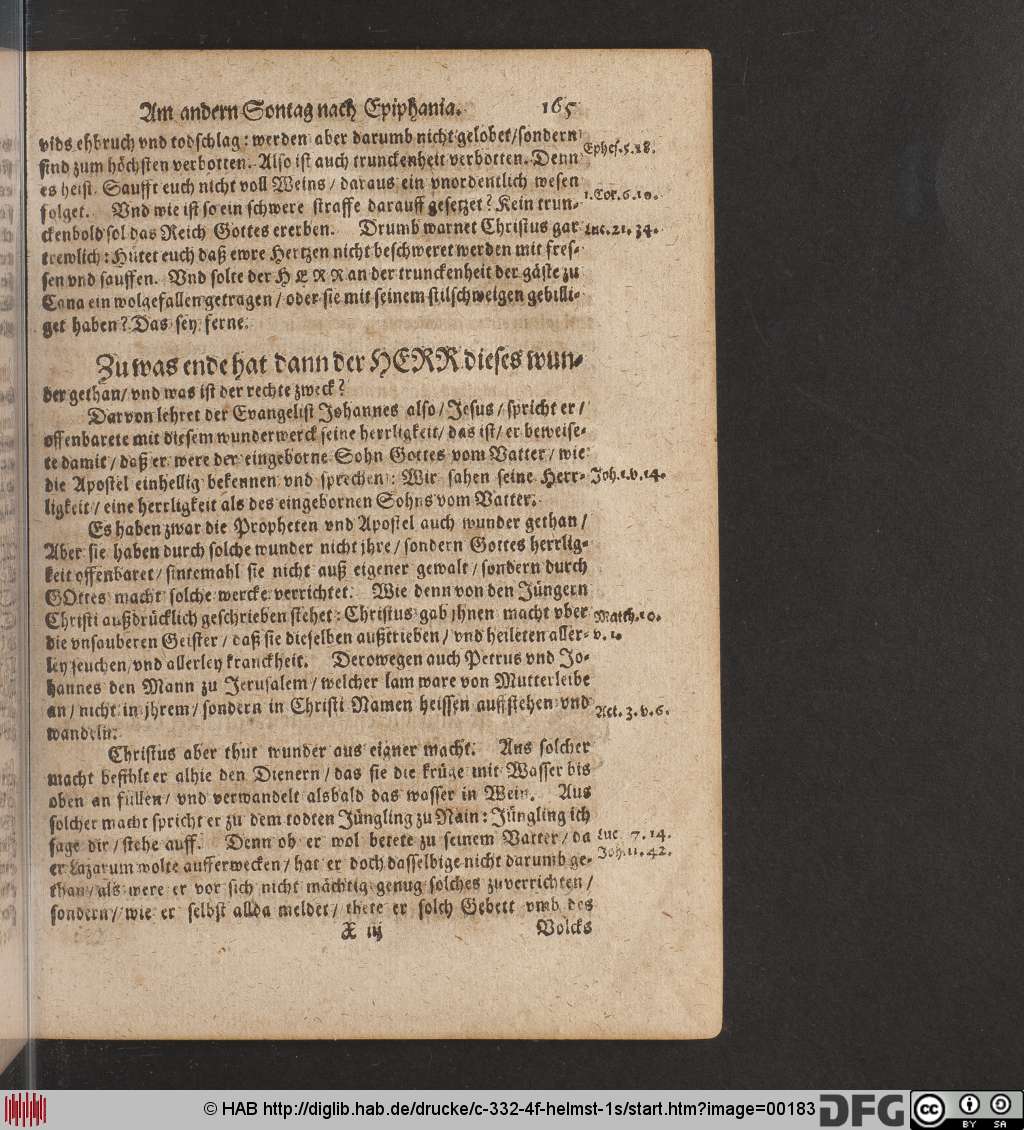 Am andern Sontag nach Epiphania. 165
vids ehbruch vnd todschlag: werden aber darumb nicht gelobet/sondern
sind zum höchsten verbotten. Also ist auch trunckenheit verbotten. Denn Ephes. 5. 18.
es heist Saufft euch nicht voll Weins / daraus ein vnordentlich wesen
folget. Vnd wie ist so ein schwere straffe darauff gesetzet? Kein trun- 1. Cor. 6. 10.
ckenbold sol das Reich Gottes ererben. Drumb warnet Christus gar Luc. 21. 34.
trewlich: Hütet euch daß ewre Hertzen nicht beschweret werden mit fres-
sen vnd sauffen. Vnd solte der HERR an der trunckenheit der gäste zu
Cana ein wolgefallen getragen / oder sie mit seinem stilschweigen gebilli-
get haben? Das sey ferne.
Zu was ende hat dann der HERR dieses wun-
der gethan/ vnd was ist der rechte zweck?
Darvon lehret der Evangelist Johannes also / Jesus / spricht er /
offenbarete mit diesem wunderwerck seine herrligkeit/ das ist/ er beweise-
te damit / daß er were der eingeborne Sohn Gottes vom Vatter / wie
die Apostel einhellig bekennen vnd sprechen: Wir sahen seine Herr- Joh. 1. v. 14.
ligkeit / eine herrligkeit als des eingebornen Sohns vom Vatter.
Es haben zwar die Propheten vnd Apostel auch wunder gethan /
Aber sie haben durch solche wunder nicht jhre / sondern Gottes herrlig-
keit offenbaret / sintemahl sie nicht auß eigener gewalt / sondern durch
GOttes macht solche wercke verrichtet. Wie denn von den Jüngern
Christi außdrücklich geschrieben stehet: Christus gab jhnen macht vber Matth. 10.
die vnsauberen Geister / daß sie dieselben außtrieben / vnd heileten aller- v. 1.
ley seuchen/ vnd allerley kranckheit. Derowegen auch Petrus vnd Jo-
hannes den Mann zu Jerusalem / welcher lam ware von Mutterleibe
an / nicht in jhrem / sondern in Christi Namen heissen auffstehen vnd Act. 3. v. 6.
wandeln.
Christus aber thut wunder aus eigner macht. Aus solcher
macht befihlt er alhie den Dienern / das sie die krüge mit Wasser bis
oben an füllen / vnd verwandelt alsbald das wasser in Wein. Aus
solcher macht spricht er zu dem todten Jüngling zu Nain: Jüngling ich
sage dir / stehe auff. Denn ob er wol betete zu seinem Vatter / da Luc. 7. 14.
er Lazarum wolte aufferwecken / hat er doch dasselbige nicht darumb ge- Joh. 11. 42.
than / als were er vor sich nicht mächtig genug solches zuverrichten /
sondern / wie er selbst allda meldet / thete er solch Gebett vmb des
X iij Volcks
© HAB http://diglib.hab.de/drucke/c-332-4f-helmst-1s/start.htm?image=00183 DFG cc BY SA